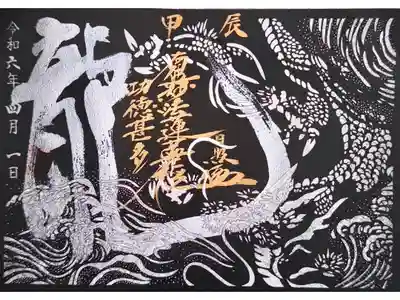 甲辰
南無妙法蓮華経
功徳甚多
龍
令和六年四月一日